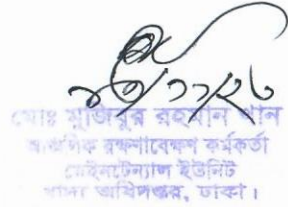 মোঃ মুজিবুর রহমান খান
রক্ষণাবেক্ষণ কর্মকর্তা
মেইনটেন্যান্স ইউনিট
খাদ্য অধিদপ্তর, ঢাকা।